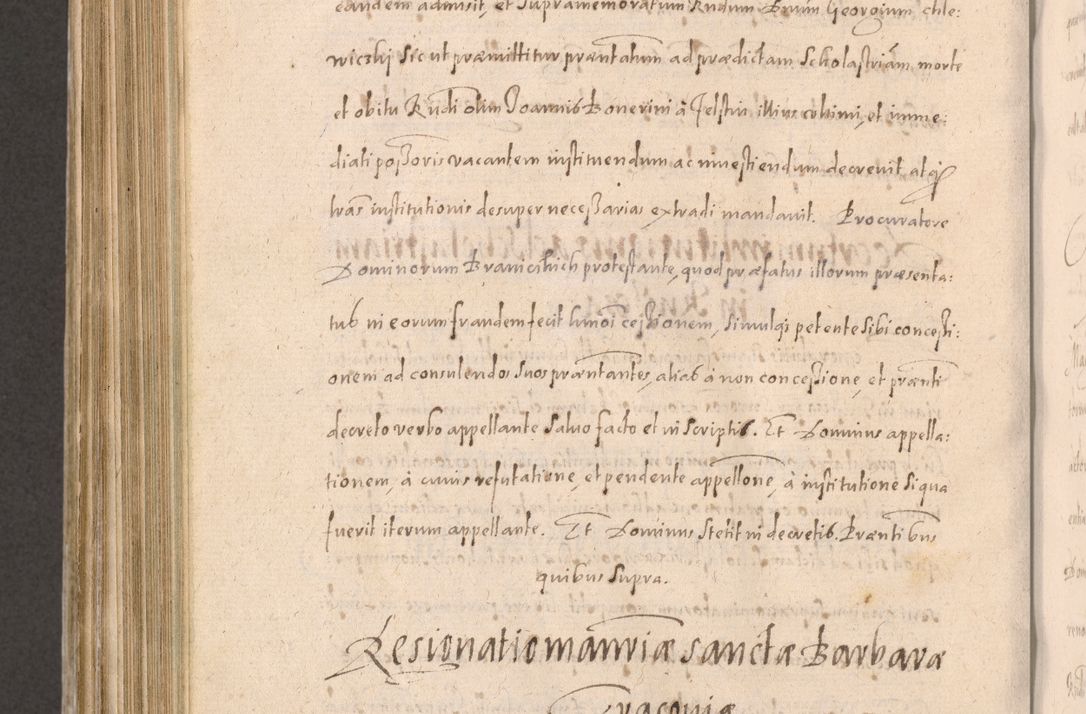 eandem admisit, et supramemoratum Rndum Bnum Georgium chle:
wiczkij sic ut præmittitur præntatum ad prædictam Scholastriam, morte
et obitu Rndi olim Joannis Bonerini à Jelstin illius ultimi, et imme:
diati possoris vacantem instituendum ac investiendum decrevit atq
lras institutionis desuper necessarias extradi mandavit. Procuratore
Dominorum Branicskich protestante, quod præfatus illorum præsenta:
tus in eorum fraudem fecit hmoi cessionem, simulqi petente sibi concessi:
onem ad consulendos suos præntantes, alias à non concessione, et prænti
decreto verbo appellante salvo facto et in scriptis. Et Dominus appella:
tionem, à cuius refutatione, et pendente appellone, à institutione si qua
fuerit iterum appellante. Et Dominus stetit in decretis. Præntibus
quibus supra.
Resignatio manriæ sanctæ Barbaræ